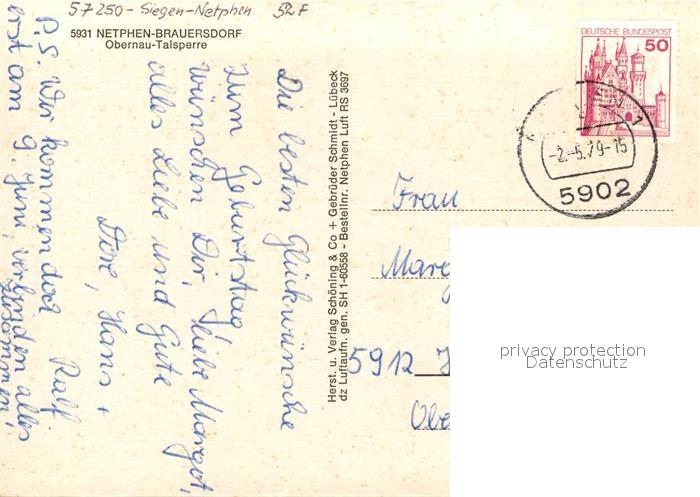 57250 - Siegen-Netphen 52F
5931 NETPHEN-BRAUERSDORF
Obernau-Talsperre
Die besten Glückwünsche
zum Geburtstag
wünschen Dir, liebe Margot,
alles Liebe und Gute
Dore, Hans +
Ralf.
P.S. Wir kommen doch
erst am 9. Juni, verbinden alles
zusammen!
Herst. u. Verlag Schöning & Co + Gebrüder Schmidt - Lübeck
dz Luftaufn. gen. SH 1-60558 - Bestellnr. Netphen Luft RS 3697
DEUTSCHE BUNDESPOST
50
-2.-5.79-15
5902
Frau
Marg
5912
Obe
privacy protection
Datenschutz